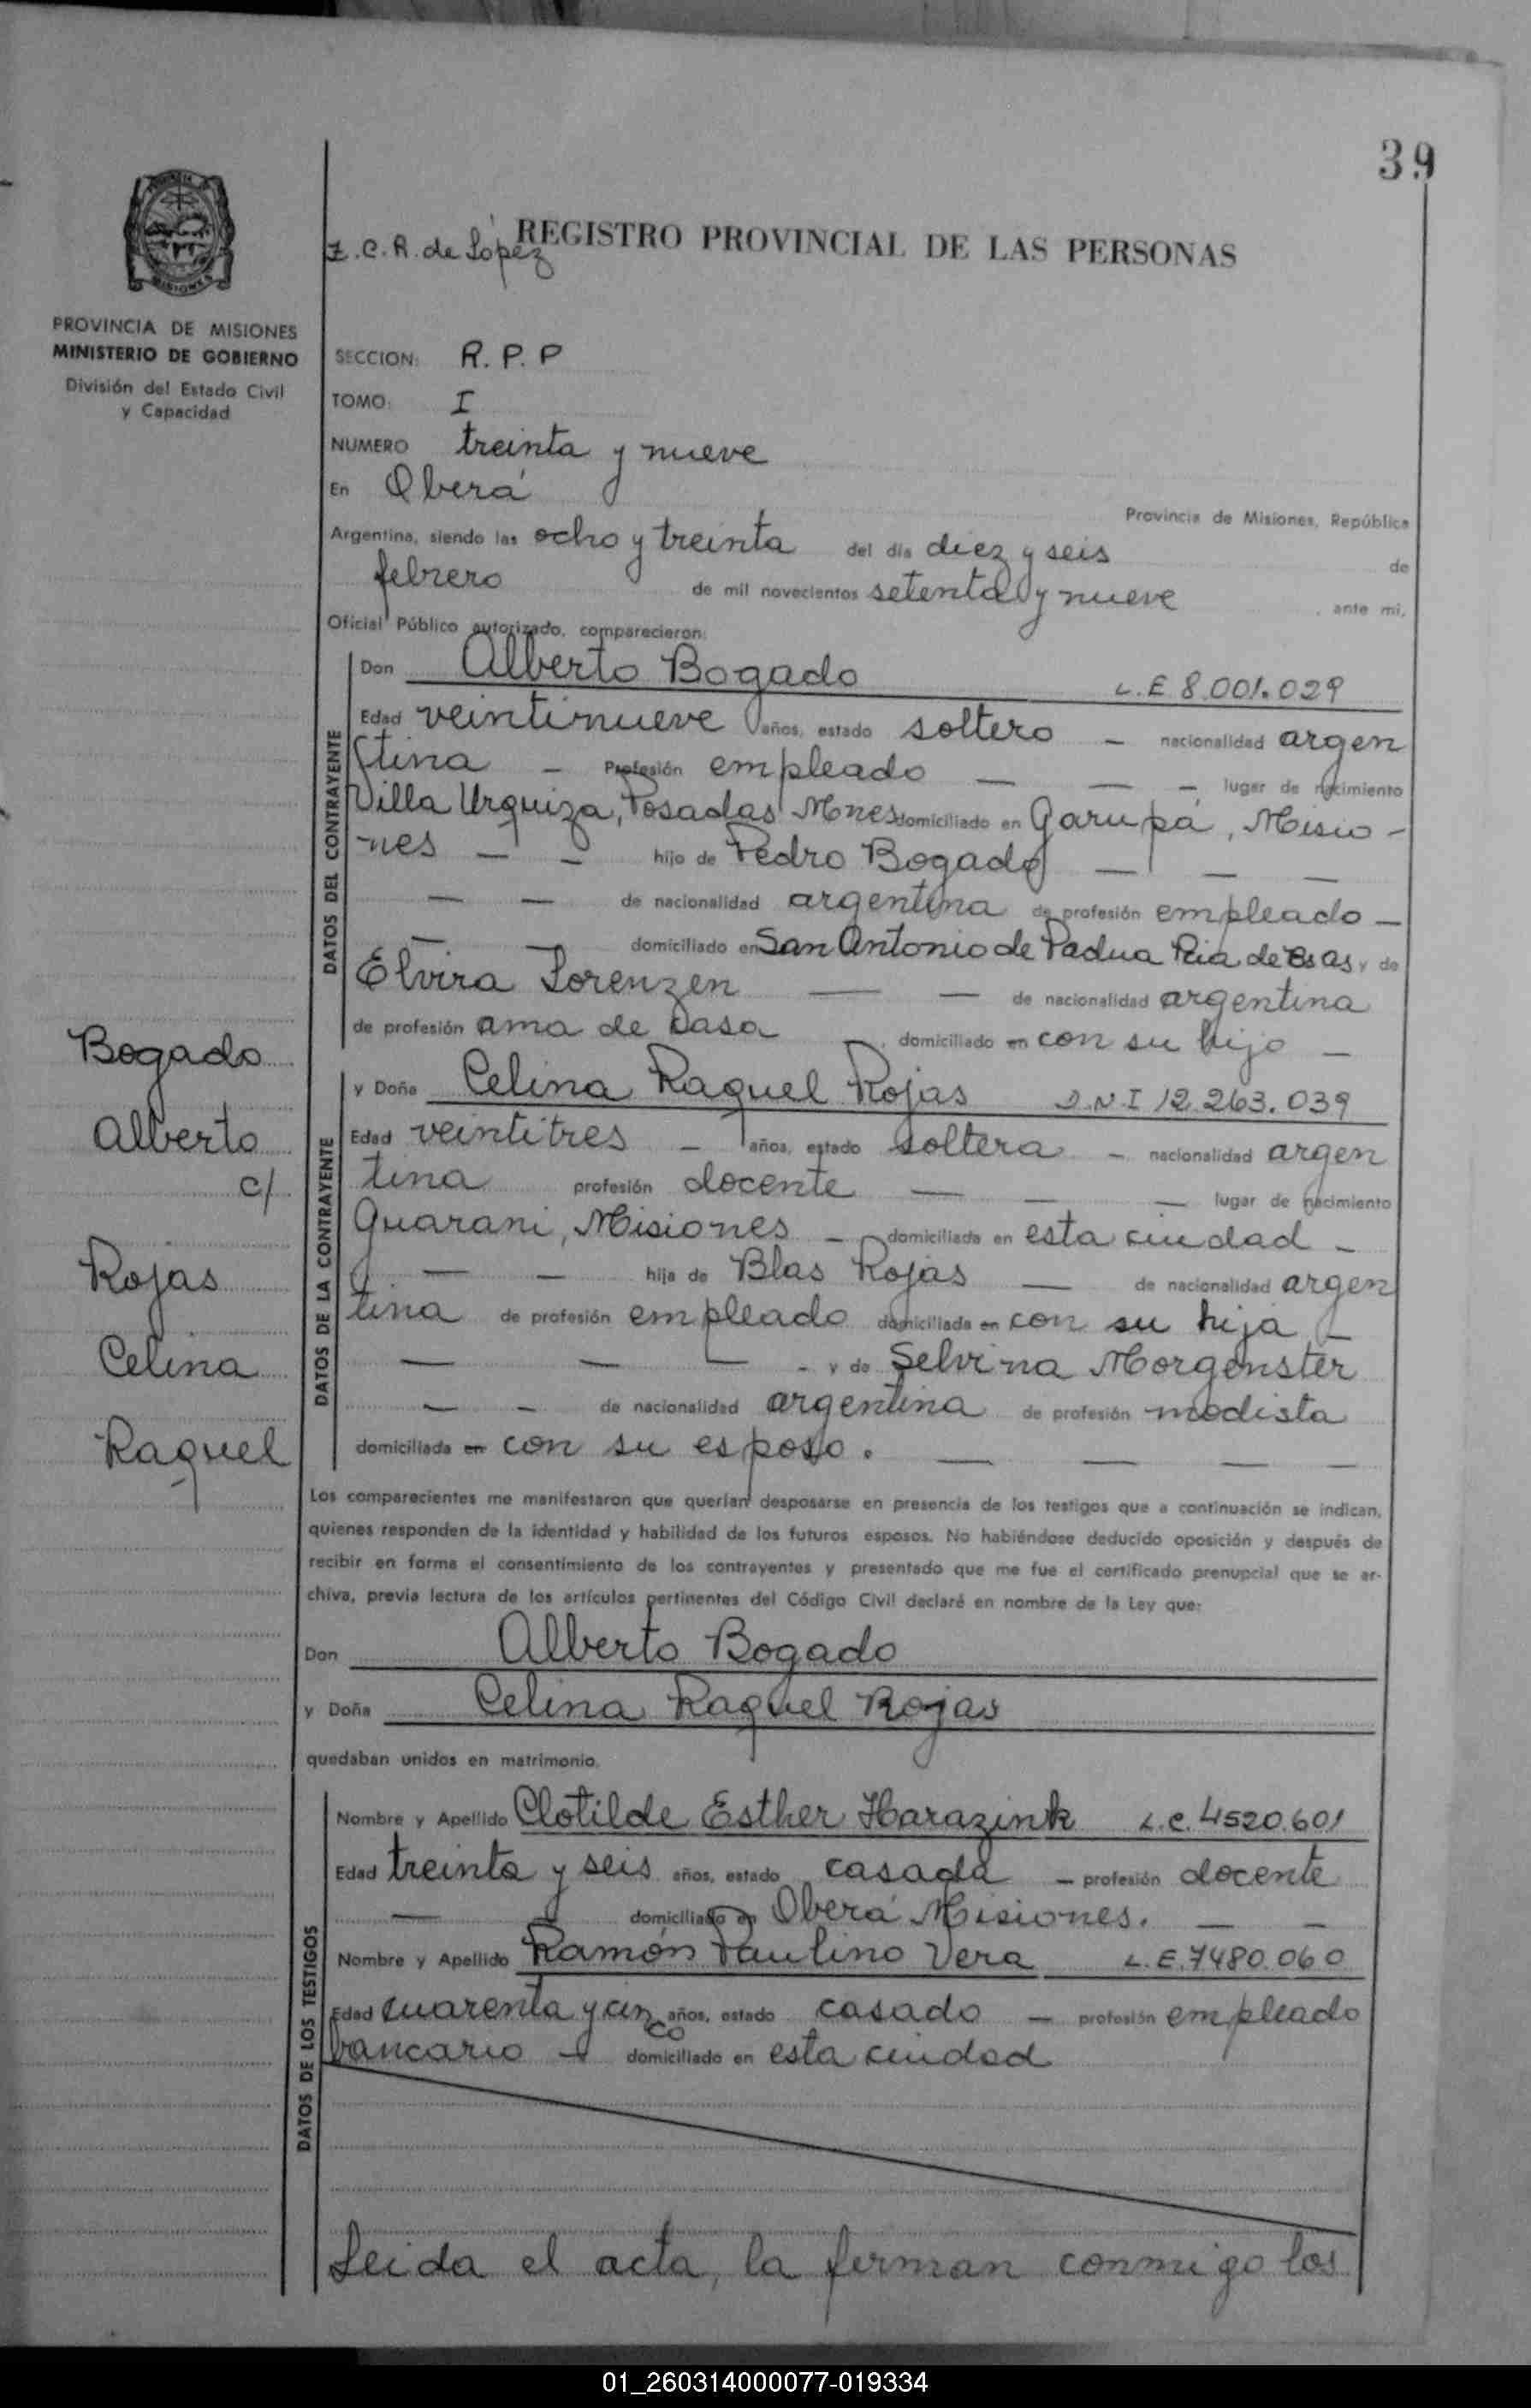 39
REGISTRO PROVINCIAL DE LAS PERSONAS
Z.C.R. de López
PROVINCIA DE MISIONES
MINISTERIO DE GOBIERNO
División del Estado Civil
y Capacidad
SECCION: R.P.P
TOMO: I
NUMERO treinta y nueve
En Oberá
Provincia de Misiones, República
Argentina, siendo las ocho y treinta del día diez y seis de
febrero de mil novecientos setenta y nueve , ante mi,
Oficial Público autorizado, comparecieron:
DATOS DEL CONTRAYENTE
Don Alberto Bogado L.E 8.001.029
Edad veintinueve años, estado soltero - nacionalidad argen
tina - Profesión empleado - - - lugar de nacimiento
Villa Urquiza, Posadas Mnes domiciliado en Garupá, Misio-
nes - - hijo de Pedro Bogado - - -
- - de nacionalidad argentina de profesión empleado -
- - domiciliado en San Antonio de Padua Pcia de Bs As y de
Elvira Lorenzen - - de nacionalidad argentina
de profesión ama de casa , domiciliado en con su hijo -
Bogado
Alberto
c/
Rojas
Celina
Raquel
DATOS DE LA CONTRAYENTE
y Doña Celina Raquel Rojas D.N.I 12.263.039
Edad veintitres - años, estado soltera - nacionalidad argen
tina profesión docente - - - lugar de nacimiento
Guarani, Misiones - domiciliada en esta ciudad -
- - hija de Blas Rojas - de nacionalidad argen
tina de profesión empleado domiciliada en con su hija -
- - - - y de Selvina Morgenster
- - de nacionalidad argentina de profesión modista
domiciliada en con su esposo. - - - -
Los comparecientes me manifestaron que querían desposarse en presencia de los testigos que a continuación se indican,
quienes responden de la identidad y habilidad de los futuros esposos. No habiéndose deducido oposición y después de
recibir en forma el consentimiento de los contrayentes y presentado que me fue el certificado prenupcial que se ar-
chiva, previa lectura de los artículos pertinentes del Código Civil declaré en nombre de la Ley que:
Don Alberto Bogado
y Doña Celina Raquel Rojas
quedaban unidos en matrimonio.
DATOS DE LOS TESTIGOS
Nombre y Apellido Clotilde Esther Harazink L.C. 4520.601
Edad treinta y seis años, estado casada - profesión docente
- domiciliado en Oberá Misiones. - -
Nombre y Apellido Ramón Paulino Vera L.E. 7480.060
Edad cuarenta y cinco años, estado casado - profesión empleado
bancario - domiciliado en esta ciudad
Leida el acta, la firman conmigo los
01_260314000077-019334